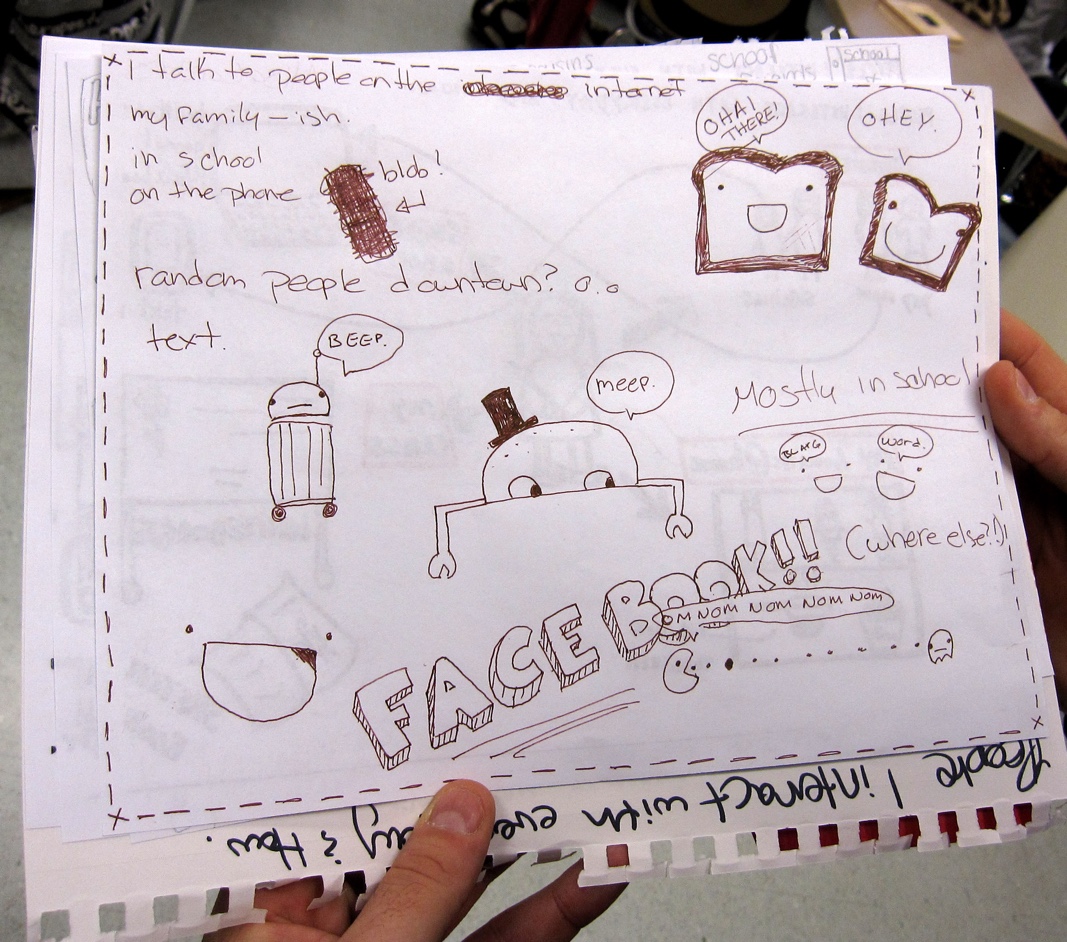 I talk to people on the internet
my family - ish.
in school
on the phone
blob!
random people downtown? o.o
text.
OHAI THERE!
OHEY.
BEEP.
meep.
Mostly in school
BLARG
word.
(where else?!)
FACEBOOK!!
OM NOM NOM NOM NOM
People I interact with everyday & How.
school
school